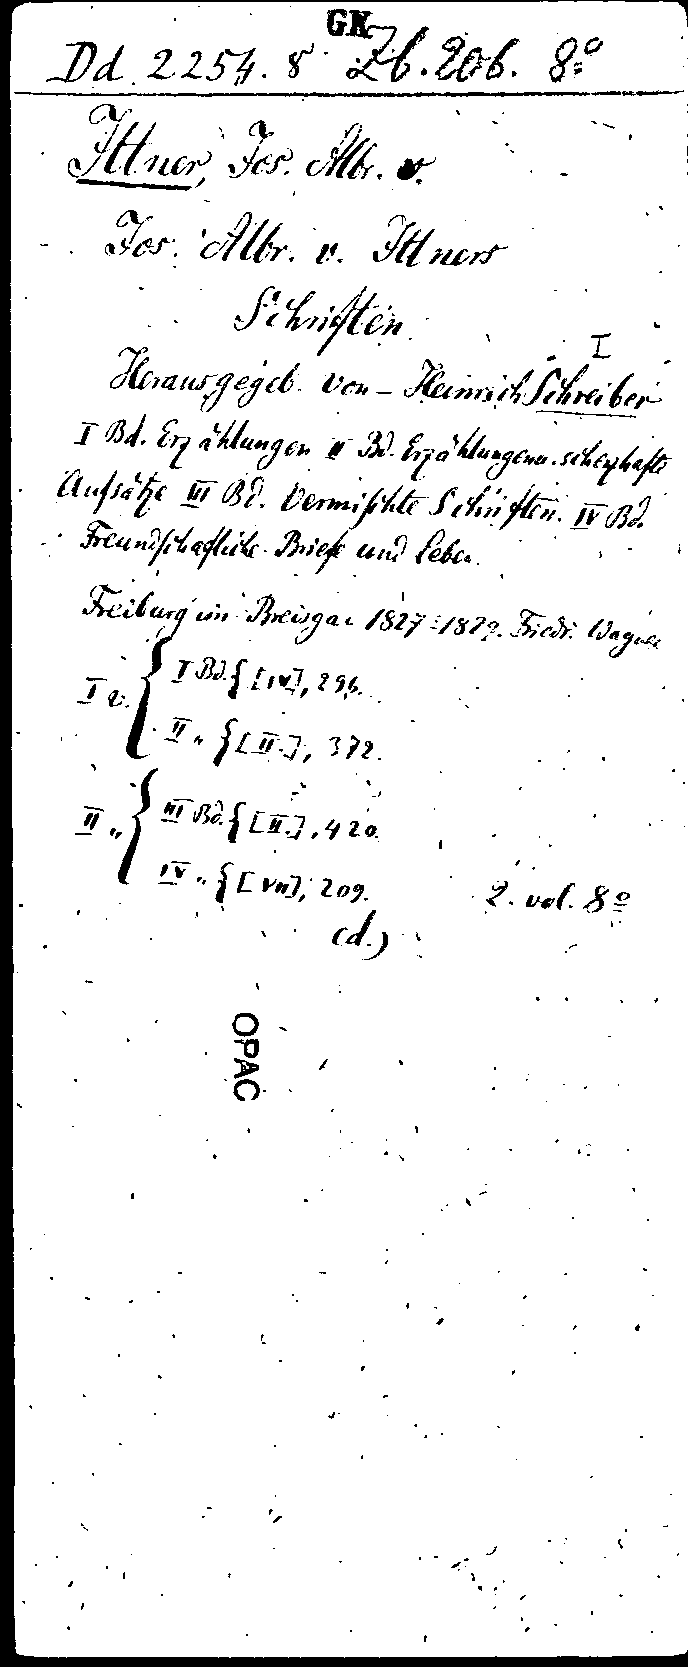 GK
Dd 2254. 8 Zb. 206. 8º
Ittner, Jos. Albr. v.
Jos. Albr. v. Ittners
Schriften
I
Herausgegeb. von - Heinrich Schreiber
I Bd. Erzählungen II Bd. Erzählungen u. scherzhafte
Aufsätze III Bd. Vermischte Schriften. IV Bd.
Freundschaftliche Briefe und Leben.
Freiburg im Breisgau 1827-1829. Friedr. Wagner
I v. { I Bd. { [IV], 296.
II „ { [II.], 372.
II „ { III Bd. { [II.], 420.
IV „ { [VII], 209.
2. vol. 8º
(d.)
OPAC